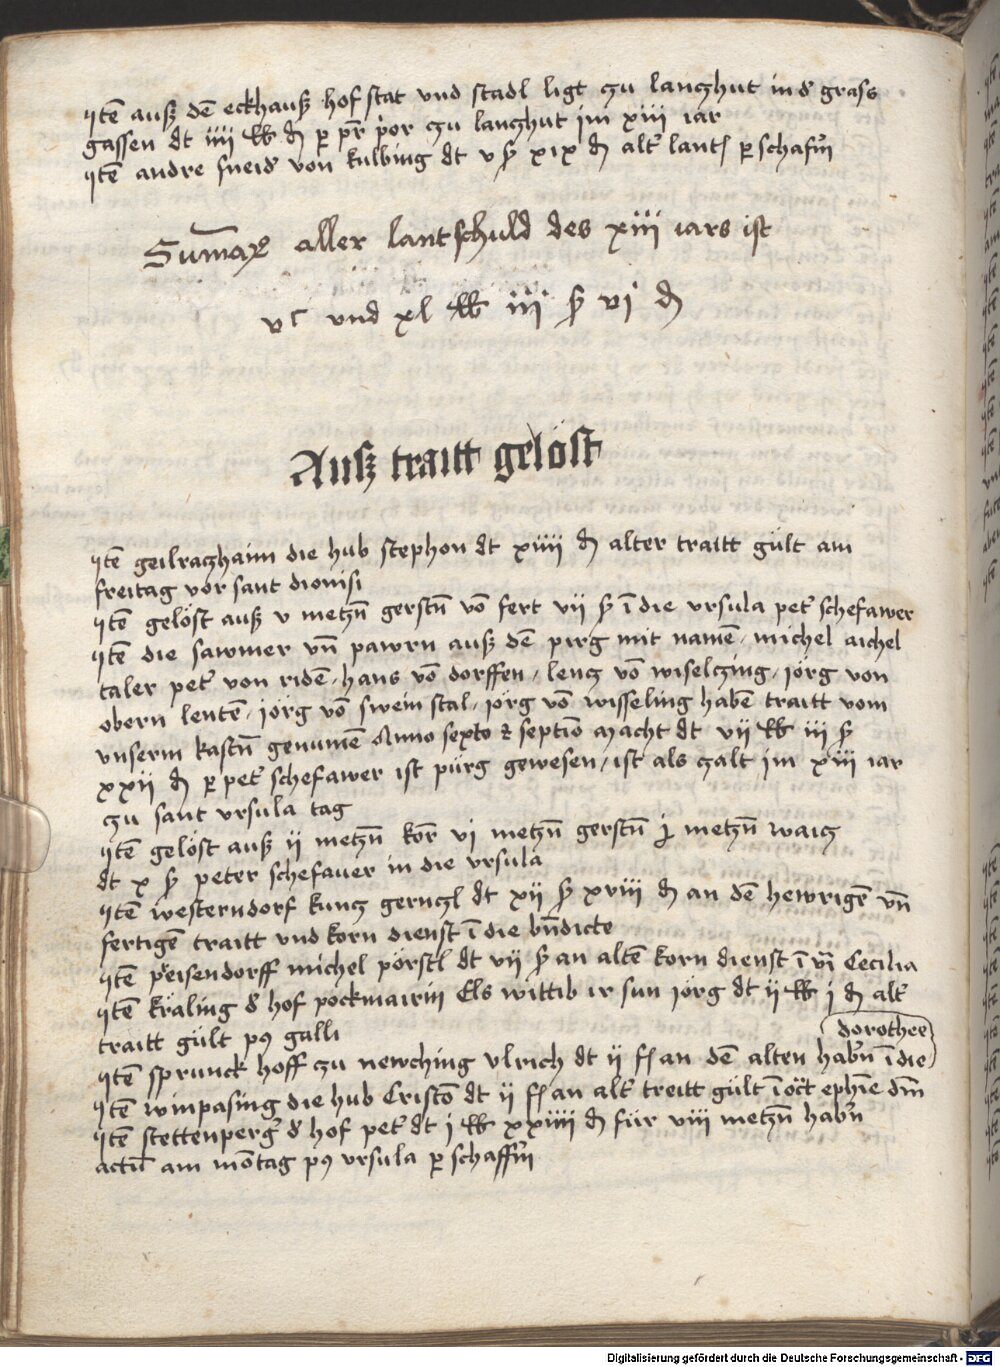 Itē auß dē eckhauß hofstat und stadl ligt zu lanzhut in d' grass
gassen dt iiii lb d p pr̄ p'or zu lanzhut im xiii iar
Itē andre sneid' von kulbing dt v ß xix d alt' lants p schafn̄
Sum̄a aller lantschuld des xiii iars ist
vᶜ und xl lb iii ß vi d
Auß traitt gelöst
Itē geilraczhaim die hub stephon dt xiiii d alter traitt gült am
freitag vor sant dionisi
Itē gelöst auß v metzn̄ gerstn̄ vō fert vii ß ī die ursula pet' schefawer
Itē die sawmer un̄ pawrn auß dē pirg mit namē michel aichel
taler pet' von ridē / hans vō dorffen / lenz vō wiselczing / jörg von
obern lentē / jörg vō swein stal / jörg vō wisseling habē traitt vom
unserm kastn̄ genumē Anno sexto et septīo macht dt vii lb iii ß
xxii d p pet' schefawer ist pürg gewesen / ist als zalt im xiii iar
zu sant ursula tag
Itē gelöst auß ii metzn̄ kor̄ vi metzn̄ gerstn̄ metzn̄ waicz
dt x ß peter schefauer in die ursula
Itē westerndorf kunz dt xii ß xviii d an dē hewrigē un̄
fertigē traitt und korn dienst ī die bn̄dicte
Itē preisendorff michel pörstl dt vii ß an altē korn dienst ī Cecilia
Itē kräling d' hof pöckmairin Els wittib ir sun jörg dt ii lb i d alt'
traitt gült p9 galli
Itē sprunck hoff zu newching ulrich dt ii ß an dē alten hab'n ī die dorothee
Itē winpasing die hub Cristō dt ii ß an alt' treitt gült ī oct ephīe dm̄
Itē stettenperg' d' hof pet' dt i lb xxiiii d für viii metzn̄ hab'n
actū am mōtag p9 ursula p schaffn̄
Digitalisierung gefördert durch die Deutsche Forschungsgemeinschaft - DFG